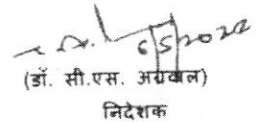 6/5/2022
(डॉ. सी.एस. अग्रवाल)
निदेशक